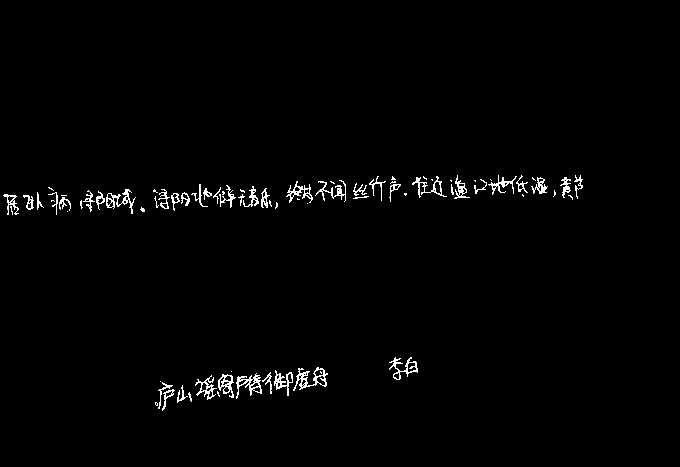 居卧病浔阳城。浔阳地僻无音乐，终岁不闻丝竹声。住近湓江地低湿，黄芦
庐山谣寄卢侍御虚舟 李白